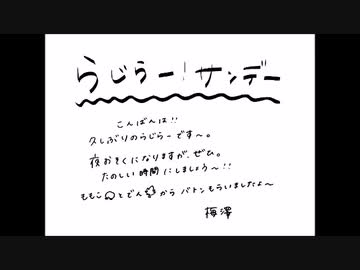 らじらー!サンデー
こんばんは!!
久しぶりのらじらーです〜。
夜おそくになりますが、ぜひ。
たのしい時間にしましょう〜!!
ももことでんからバトンもらいましたよ〜
梅澤